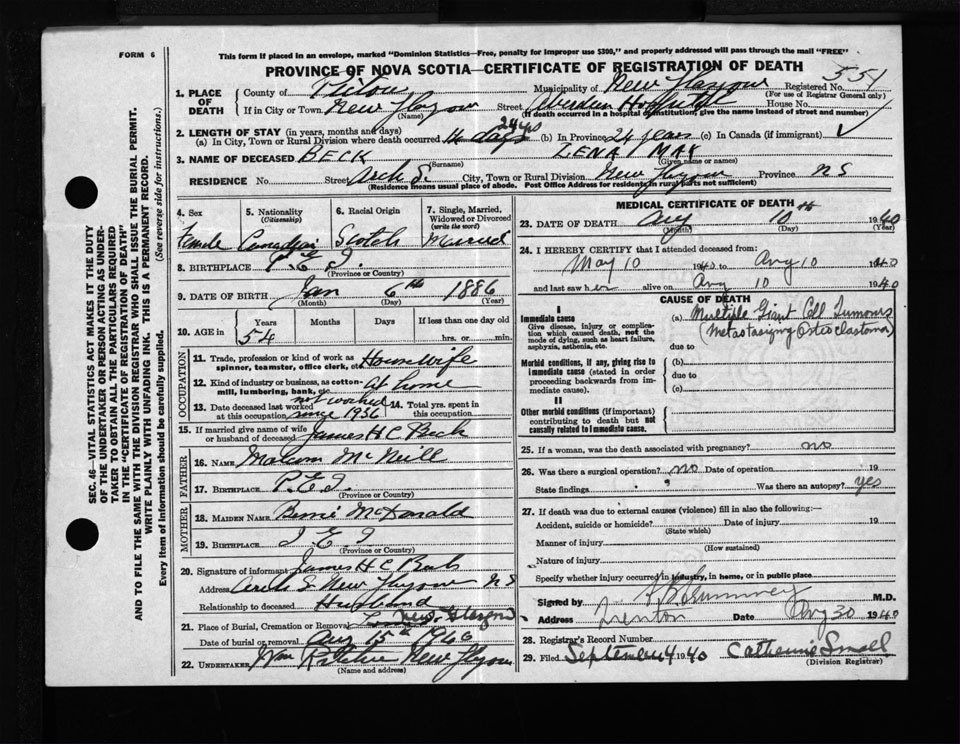 FORM 6
This form if placed in an envelope, marked "Dominion Statistics—Free, penalty for improper use $300," and properly addressed will pass through the mail "FREE"
PROVINCE OF NOVA SCOTIA—CERTIFICATE OF REGISTRATION OF DEATH
SEC. 46—VITAL STATISTICS ACT MAKES IT THE DUTY
OF THE UNDERTAKER OR PERSON ACTING AS UNDER-
TAKER TO OBTAIN ALL THE PARTICULARS REQUIRED
IN THE "CERTIFICATE OF REGISTRATION OF DEATH"
AND TO FILE THE SAME WITH THE DIVISION REGISTRAR WHO SHALL ISSUE THE BURIAL PERMIT.
WRITE PLAINLY WITH UNFADING INK. THIS IS A PERMANENT RECORD.
Every item of information should be carefully supplied. (See reverse side for instructions.)
1. PLACE OF DEATH
County of Pictou Municipality of New Glasgow Registered No. 551
(For use of Registrar General only)
If in City or Town New Glasgow Street Aberdeen Hospital House No.
(Name) (If death occurred in a hospital or institution, give the name instead of street and number)
2. LENGTH OF STAY (in years, months and days)
(a) In City, Town or Rural Division where death occurred 24 yrs 4 days (b) In Province 24 years (c) In Canada (if immigrant) ✓
3. NAME OF DECEASED BECK LENA MAY
(Surname) (Given name or names)
RESIDENCE No. Street Arch S. City, Town or Rural Division New Glasgow Province NS
(Residence means usual place of abode. Post Office Address for residents in rural parts not sufficient)
4. Sex Female
5. Nationality (Citizenship) Canadian
6. Racial Origin Scotch
7. Single, Married, Widowed or Divorced (write the word) Married
8. BIRTHPLACE P.E.I.
(Province or Country)
9. DATE OF BIRTH Jan 6th 1886
(Month) (Day) (Year)
10. AGE in Years Months Days If less than one day old
54 hrs. or min.
OCCUPATION
11. Trade, profession or kind of work as spinner, teamster, office clerk, etc. Housewife
12. Kind of industry or business, as cotton-mill, lumbering, bank, etc. At home
13. Date deceased last worked at this occupation not worked since 1936
14. Total yrs. spent in this occupation
15. If married give name of wife or husband of deceased James H C Beck
FATHER
16. NAME Malcom McNeill
17. BIRTHPLACE P.E.I.
(Province or Country)
MOTHER
18. MAIDEN NAME McDonald
19. BIRTHPLACE
(Province or Country)
20. Signature of informant James H C Beck
Address Arch S New Glasgow NS
Relationship to deceased Husband
21. Place of Burial, Cremation or Removal New Glasgow
Date of burial or removal Aug 15th 1940
22. UNDERTAKER Wm New Glasgow
(Name and address)
MEDICAL CERTIFICATE OF DEATH
23. DATE OF DEATH Aug 10th 1940
(Month) (Day) (Year)
24. I HEREBY CERTIFY that I attended deceased from:
May 10 1940 to Aug 10 1940
and last saw her alive on Aug 10 1940
CAUSE OF DEATH
I
Immediate cause
Give disease, injury or complication which caused death, not the mode of dying, such as heart failure, asphyxia, asthenia, etc.
(a) Multiple Giant Cell Tumours
(Metastasizing Osteoclastoma)
due to
Morbid conditions, if any, giving rise to immediate cause (stated in order proceeding backwards from immediate cause).
(b)
due to
(c)
II
Other morbid conditions (if important) contributing to death but not causally related to immediate cause.
25. If a woman, was the death associated with pregnancy? no
26. Was there a surgical operation? no Date of operation 19
State findings Was there an autopsy? yes
27. If death was due to external causes (violence) fill in also the following:—
Accident, suicide or homicide? Date of injury 19
(State which)
Manner of injury
(How sustained)
Nature of injury
Specify whether injury occurred in industry, in home, or in public place
Signed by M.D.
Address Trenton Date Aug 30 1940
28. Registrar's Record Number
29. Filed September 4 1940 Catherine Small
(Division Registrar)